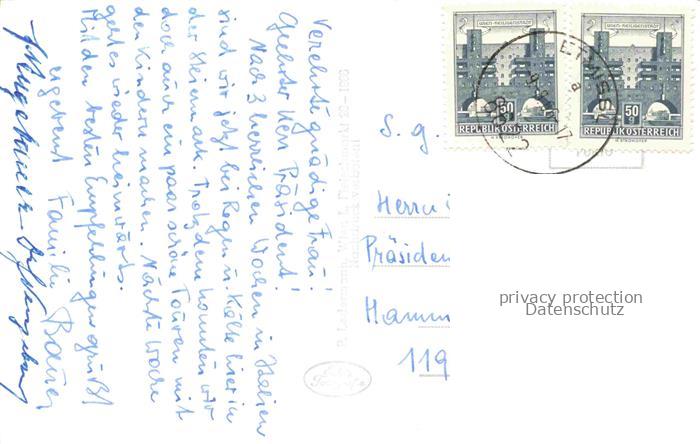 Verehrte gnädige Frau!
Geehrter Herr Präsident!
Nach 3 herrlichen Wochen in Italien
sind wir jetzt bei Regen u. Kälte hier in
der Steiermark. Trotzdem konnten wir
doch auch ein paar schöne Touren mit
den Kindern machen. Nächste Woche
geht es wieder heimwärts.
Mit den besten Empfehlungen grüßt
ergebenst Familie Bauer
WIEN-HEILIGENSTADT
50 g
REPUBLIK ÖSTERREICH
WIEN-HEILIGENSTADT
50 g
REPUBLIK ÖSTERREICH
S. g.
Herrn
Präsiden
Hamm
119
privacy protection
Datenschutz